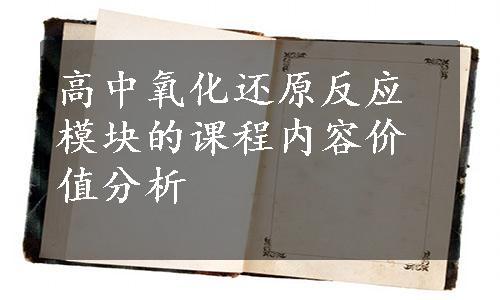 高中氧化还原反应
模块的课程内容价
值分析